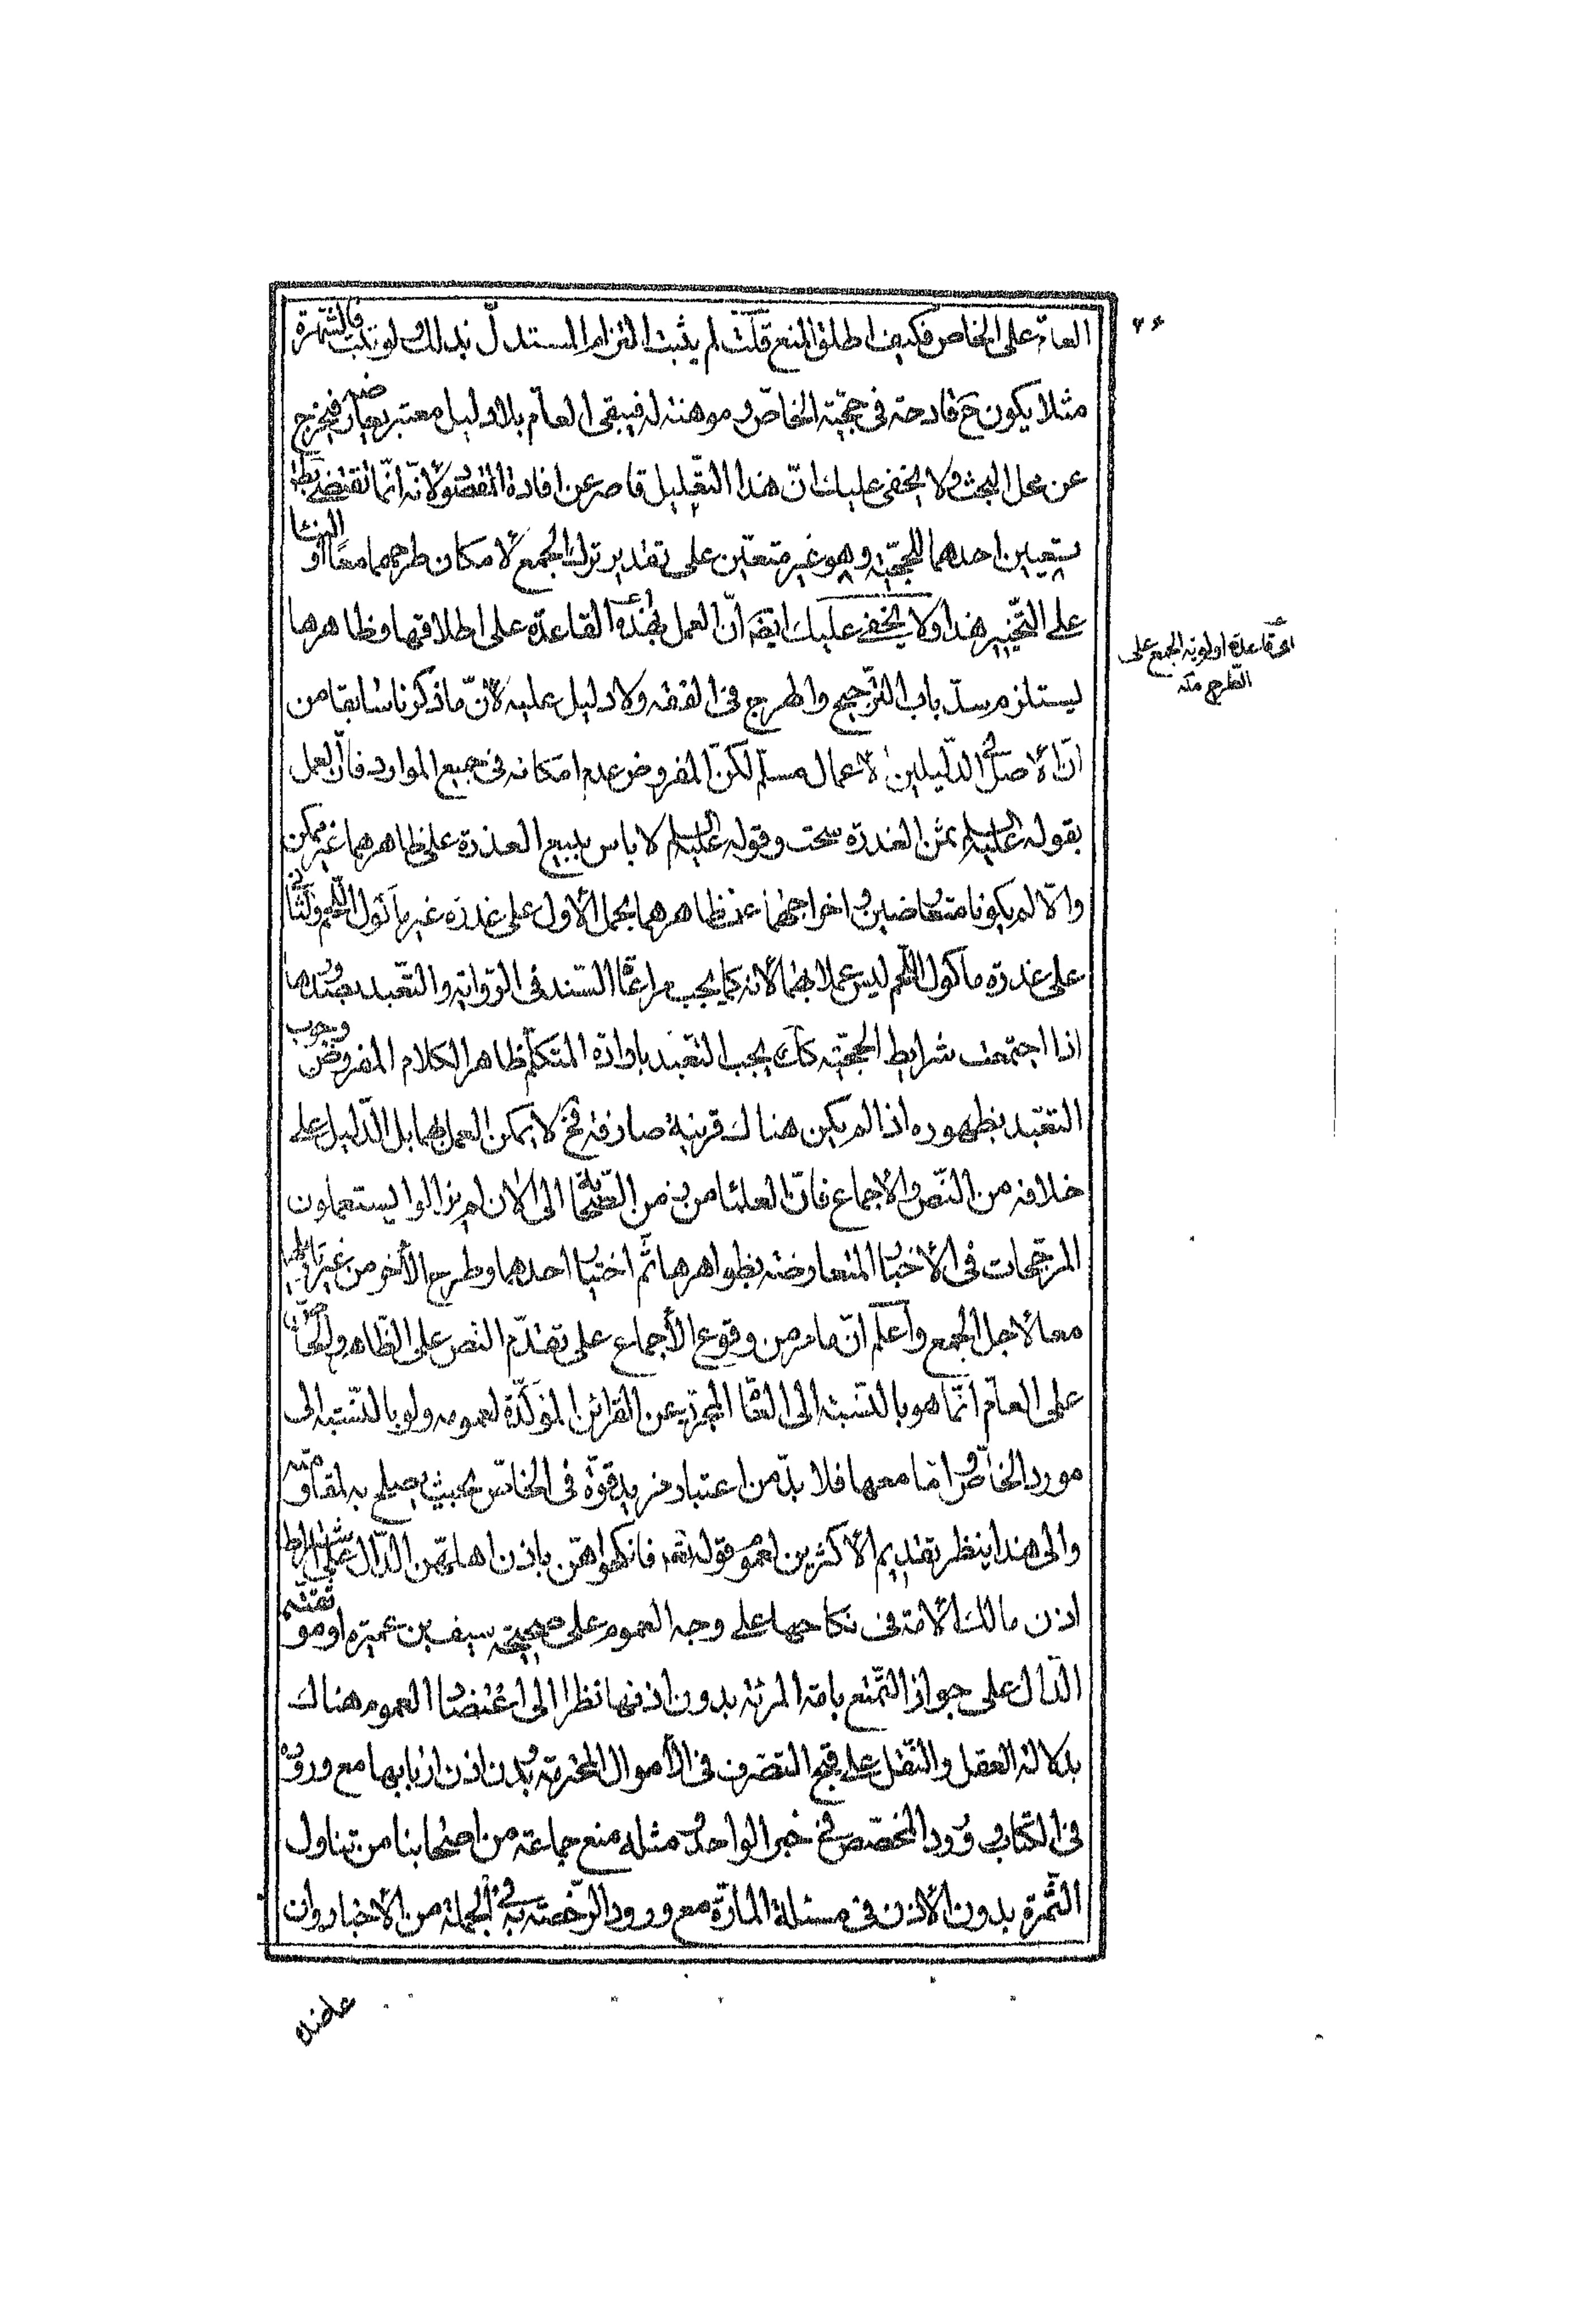 ٧٤
العامّ على الخاص فكيف اطلق المنع قلت لم يثبت التزام المستدلّ بذلك ولو ثبت فالشهرة
مثلا يكون ح قادحة فى حجّيّة الخاصّ و موهنة له فيبقى العامّ بلا دليل معتبر يعارضه فيخرج
عن محل البحث ولا يخفى عليك انّ هذا التّعليل قاصر عن افادة المقصود لانّه انّما يقتضى
بتعيين احدهما للحجّيّة وهو غير متعيّن على تقدير ترك الجمع لامكان طرحهما معًا او البناء
على التّخيير هذا ولا يخفى عليك ايضا انّ العمل بهذه القاعدة على اطلاقها وظاهرها
اى قاعدة اولوية الجمع على
الطّرح منه
يستلزم سدّ باب التّرجيح والطرح فى الفقه ولا دليل عليه لأنّ ما ذكرنا سابقا من
انّ الأصل فى الدّليلين الاعمال مسلّم لكنّ المفروض عدم امكانه فى جميع الموارد فانّ العمل
بقوله عليه السلام ثمن العذرة سحت وقوله عليه السلام لا باس ببيع العذرة على ظاهرهما غير ممكن
والّا لم يكونا متعارضين واخراجهما عن ظاهرهما بحمل الأول على عذرة غير مأكول اللّحم والثّانى
على عذرة مأكول اللّحم ليس عملا بهما لأنه كما يجب مراعاة السّند فى الرّواية والتّعبّد بصدورها
اذا اجتمعت شرايط الحجّيّة كك يجب التعبّد بارادة المتكلّم ظاهر الكلام المفروض وجوب
التعبّد بظهوره اذا لم يكن هناك قرينة صارفة فح لا يمكن العمل بهما بل الدّليل على
خلافه من النّصّ والاجماع فانّ العلماء من زمن الصّحابة الى الآن لم يزالوا يستعملون
المرجّحات فى الأخبار المتعارضة بظواهرها ثمّ اختيار احدهما وطرح الأخر من غير تاويلهما
معا لاجل الجمع واعلم انّ ما مر من وقوع الأجماع على تقدّم النص على الظّاهر والخاصّ
على العامّ انّما هو بالنّسبة الى العامّ المجرّد عن القرائن المؤكّدة لعمومه ولو بالنّسبة الى
مورد الخاصّ وامّا معها فلا بدّ من اعتبار مزيد قوّة فى الخاصّ بحيث يصلح به لمقاومته
والى هذا ينظر تقديم الأكثرين لعموم قوله تعه فانكحوهنّ باذن اهلهنّ الدّال على اشتراط
اذن مالك الأمة فى نكاحها على وجه العموم على صحيحة سيف بن عميرة او موثّقته
الدّال على جواز التّمتّع بامة المرئة بدون اذنها نظرا الى اعتضاد العموم هناك
بدلالة العقل والنّقل على قبح التصرّف فى الأموال المحترمة بدون اذن اربابها مع وروده
فى الكتاب و ورود المخصّص فى خبر الواحد و مثله منع جماعة من اصحابنا من تناول
الثّمرة بدون الأذن فى مسئلة المارّة مع ورود الرّخصة به فى الجملة من الأخبار وان